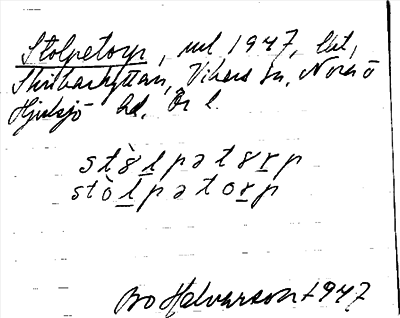 Stolpetorp, vid 1947, lht,
Skrikarhyttan, Vikers sn, Nora o
Hjulsjö bd, Ör l.
stò̀l̲pətor̲p
stòl̲pətor̲p
Bo Halvarson 1947